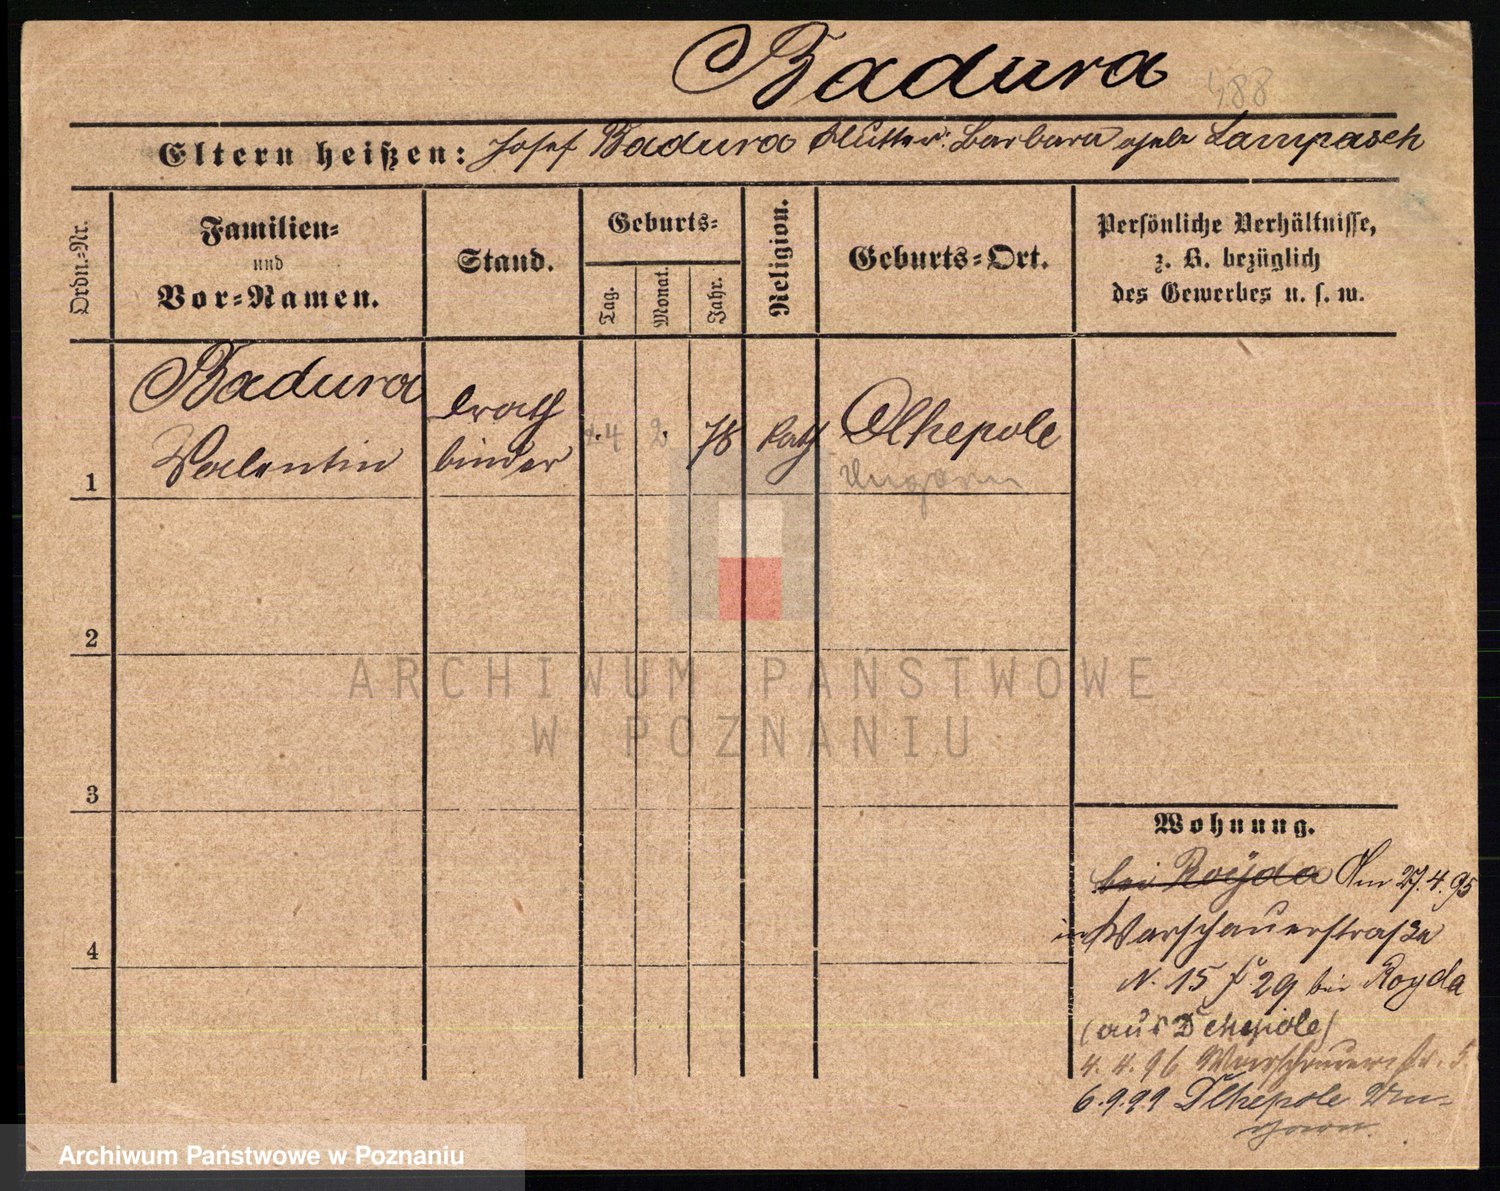 Badura
488
Eltern heißen: Josef Badura Mutter: Barbara geb Lampasch
Ordn.-Nr.
Familien-
und
Vor-Namen.
Stand.
Geburts-
Tag.
Monat.
Jahr.
Religion.
Geburts-Ort.
Persönliche Verhältnisse,
z. B. bezüglich
des Gewerbes u. s. w.
1
Badura
Valentin
Drath
binder
14.
2.
78
kath
Olhepole
Ungarn
2
3
4
ARCHIWUM PAŃSTWOWE
W POZNANIU
Wohnung.
bei Royda Am 27.4.95
in Warschauerstraße
N. 15 29 bei Royda
(aus Dlhepole)
4. 4. 96 Warschauerstr. 5
6.9.99 Dlhepole Un-
garn.
Archiwum Państwowe w Poznaniu